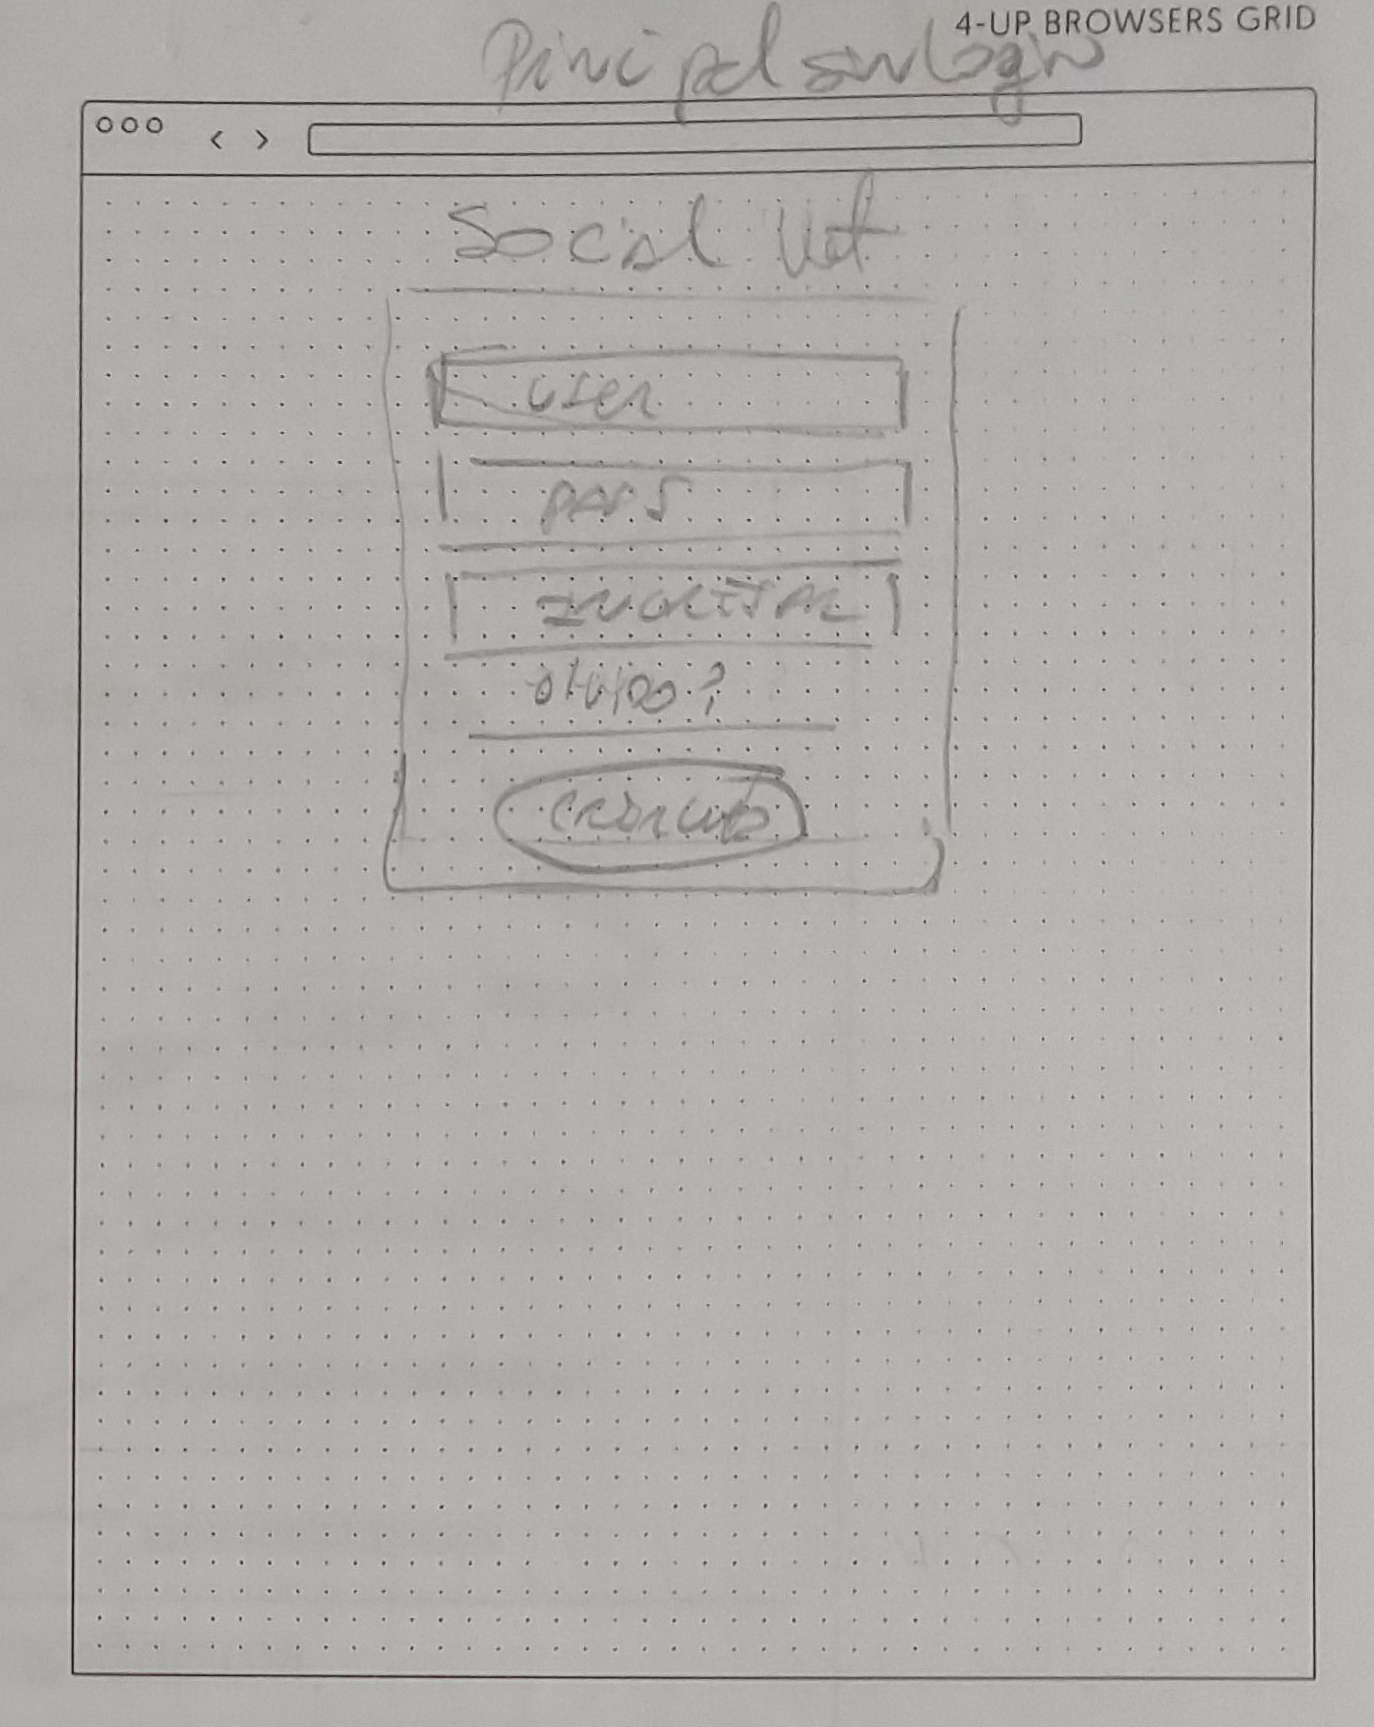 4-UP BROWSERS GRID
Principal sin login
Social
User
pass
INGRESAR
olvido?